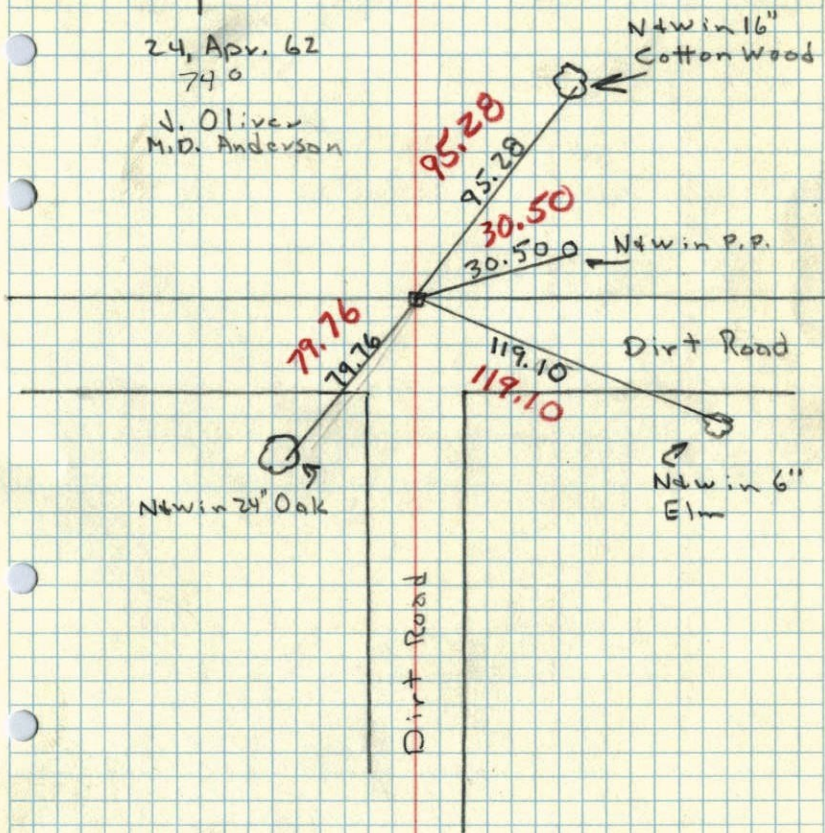 24, Apr. 62
74°
J. Oliver
M.D. Anderson
N&W in 16"
Cotton Wood
95.28
95.28
30.50
30.50
N&W in P.P.
79.76
79.76
119.10
119.10
Dirt Road
N&W in 24" Oak
N&W in 6"
Elm
Dirt Road